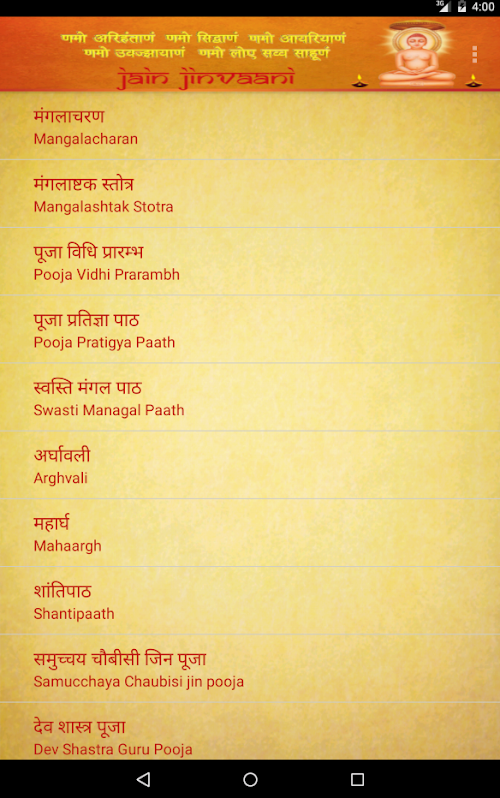 3G 4:00
णमो अरिहंताणं णमो सिद्धाणं णमो आयरियाणं
णमो उवज्झायाणं णमो लोए सव्व साहूणं
Jain Jinvaani
मंगलाचरण
Mangalacharan
मंगलाष्टक स्तोत्र
Mangalashtak Stotra
पूजा विधि प्रारम्भ
Pooja Vidhi Prarambh
पूजा प्रतिज्ञा पाठ
Pooja Pratigya Paath
स्वस्ति मंगल पाठ
Swasti Managal Paath
अर्घावली
Arghvali
महार्घ
Mahaargh
शांतिपाठ
Shantipaath
समुच्चय चौबीसी जिन पूजा
Samucchaya Chaubisi jin pooja
देव शास्त्र पूजा
Dev Shastra Guru Pooja